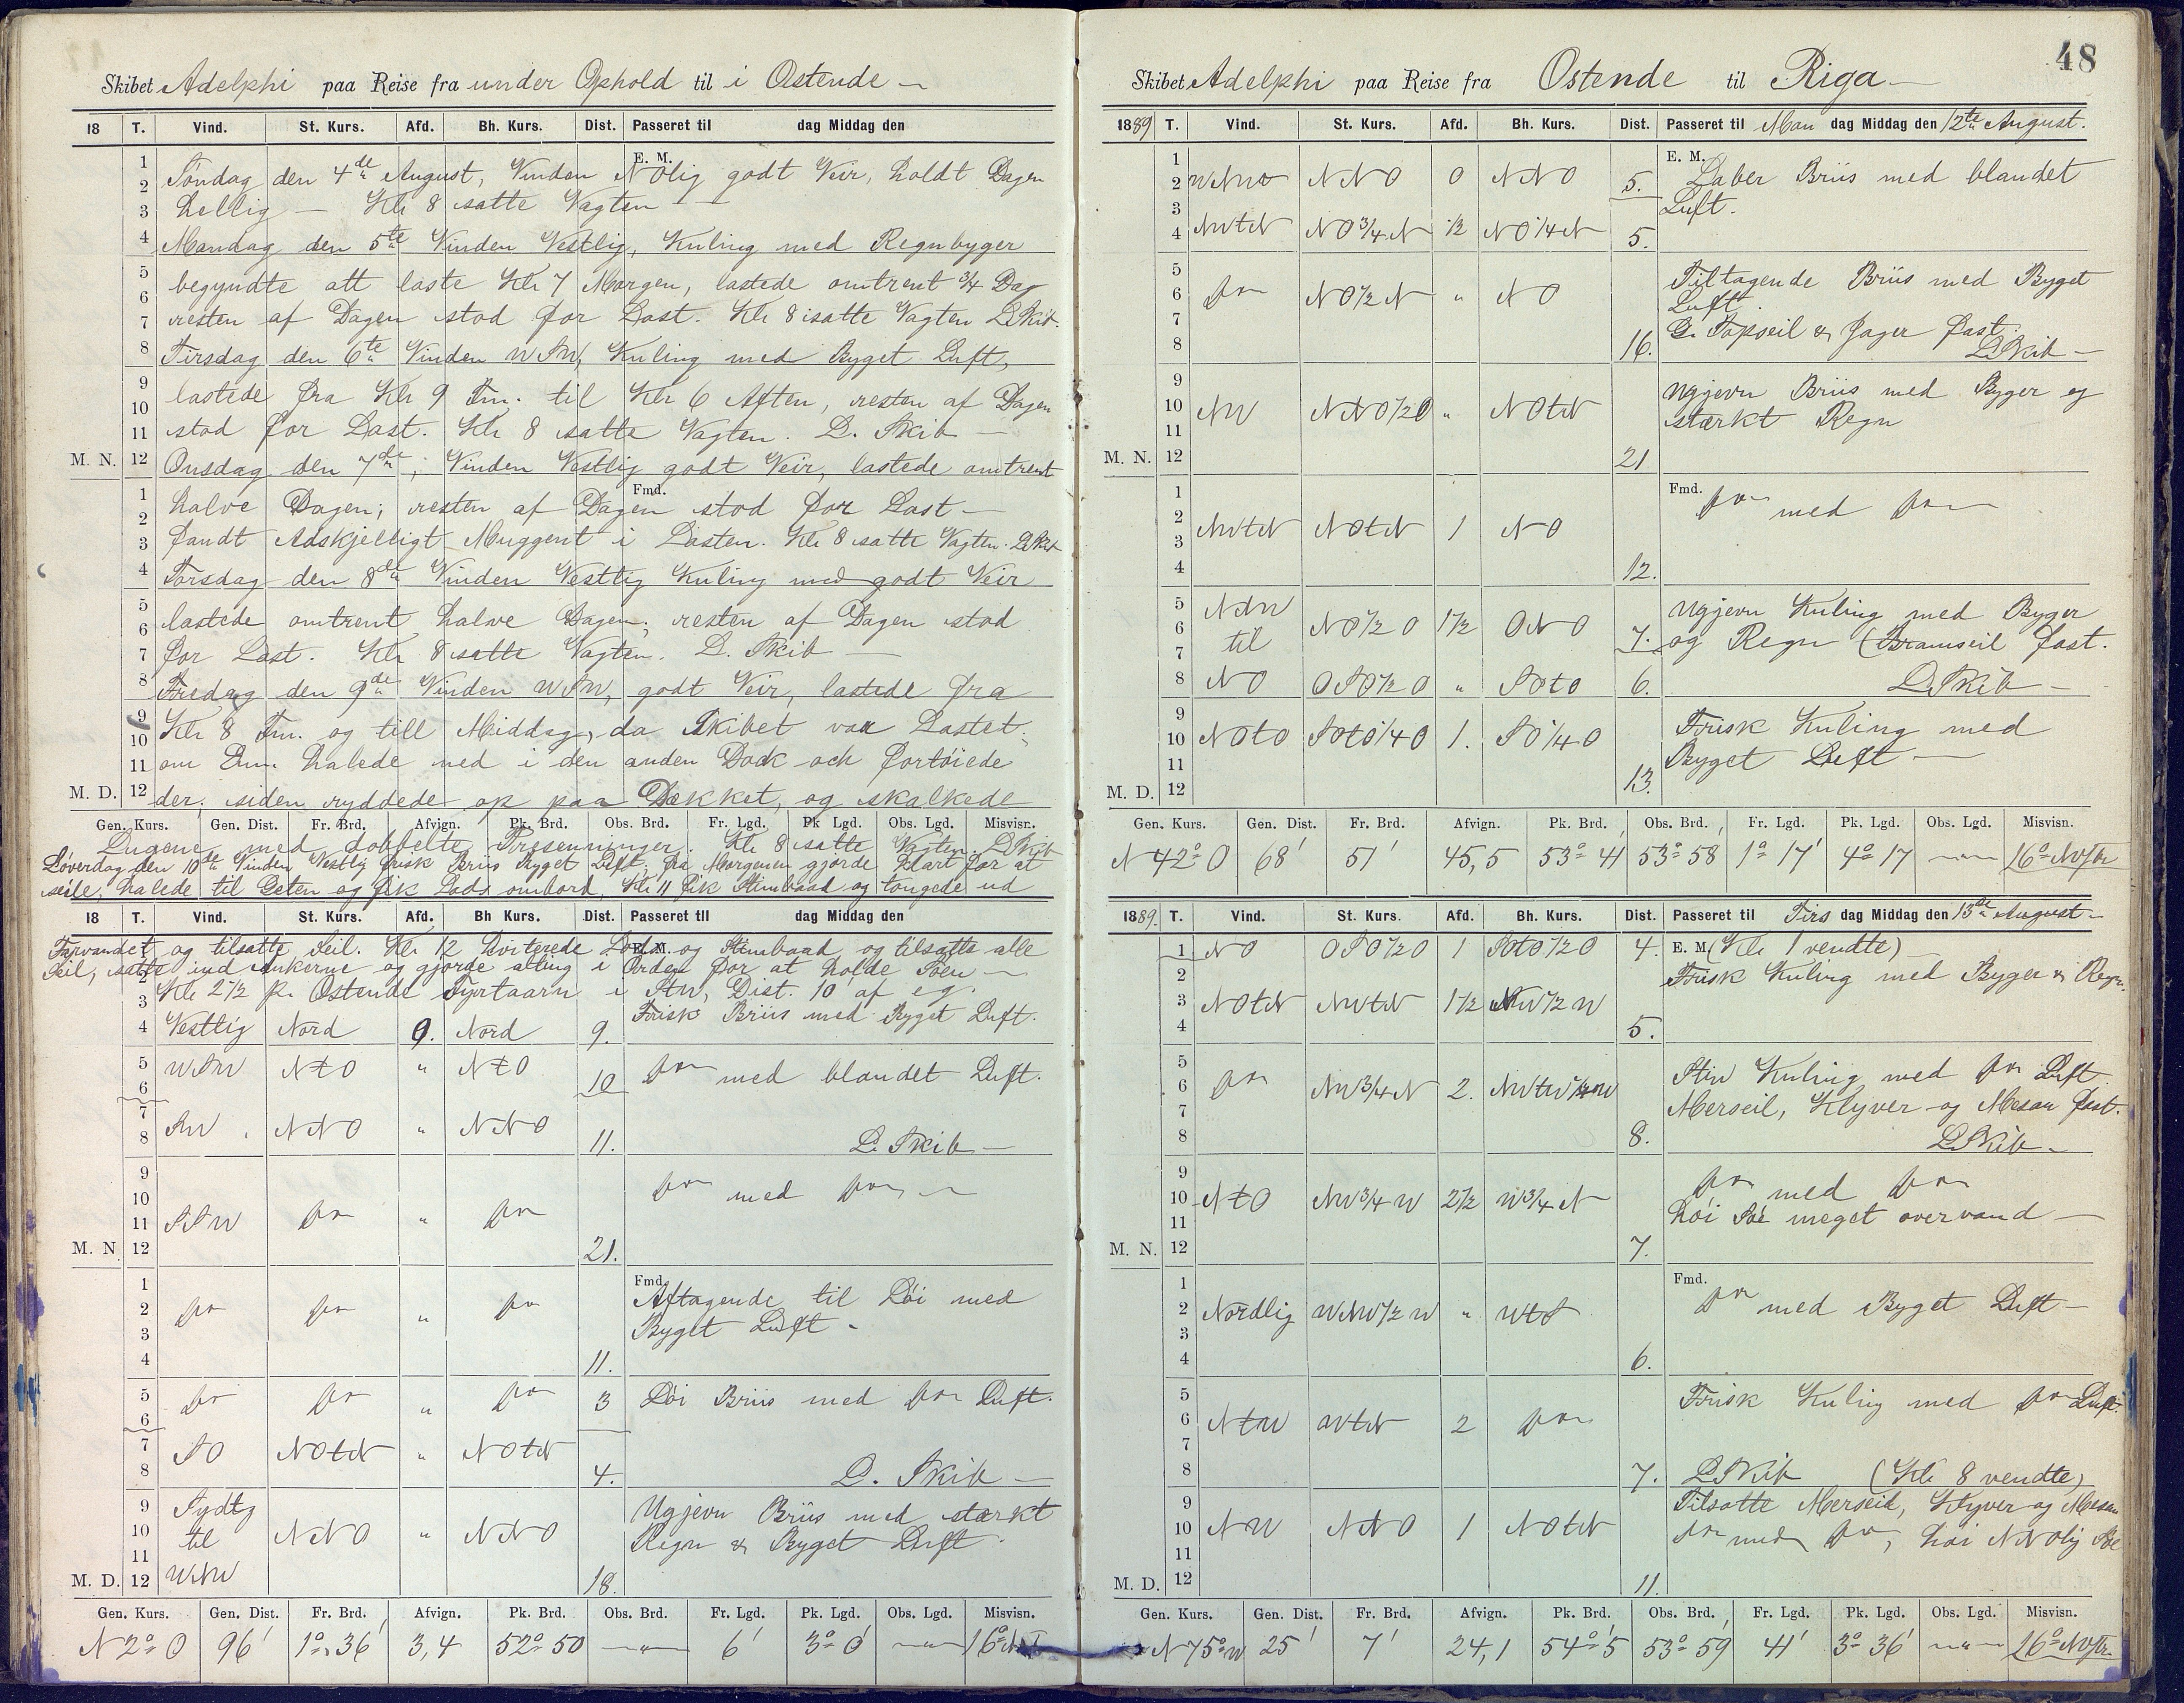 Skibet Adelphi paa Reise fra under Ophold til i Ostende
18 T. Vind. St. Kurs. Afd. Bh. Kurs. Dist. Passeret til dag Middag den
E. M.
Søndag den 4de August, Vinden NOlig godt Veir, holdt Dagen
hellig — Kl 8 satte Vagten —
Mandag den 5te Vinden Vestlig, Kuling med Regnbyger
begyndte att laste Kl 7 Morgen, lastede omtrent 3/4 Dag
resten af Dagen stod for Last. Kl 8 satte Vagten L. Skib.
Tirsdag den 6te Vinden WSW, Kuling med Byget Luft,
lastede fra Kl 9 Fm. til Kl 6 Aften, resten af Dagen
stod for Last. Kl 8 satte Vagten. L. Skib —
M. N. 12 Onsdag den 7de, Vinden Vestlig godt Veir, lastede omtrent
Fmd.
halve Dagen; resten af Dagen stod for Last —
fandt Adskjelligt Muggent i Lasten. Kl 8 satte Vagten. L. Skib
Torsdag den 8de Vinden Vestlig Kuling med godt Veir
lastede omtrent halve Dagen, resten af Dagen stod
for Last. Kl 8 satte Vagten. L. Skib —
Fredag den 9de Vinden WSW, godt Veir, lastede fra
Kl 8 Fm. og till Middag, da Skibet var Lastet.
om Em. halede ned i den anden Dock och fortøiede
M. D. 12 der, siden ryddede op paa Dækket, og skalkede
Gen. Kurs. Gen. Dist. Fr. Brd. Afvign. Pk. Brd. Obs. Brd. Fr. Lgd. Pk Lgd. Obs. Lgd. Misvisn.
Lugene med dobbelte Presenninger. Kl 8 satte Vagten. L. Skib
Løverdag den 10de Vinden Vestlig frisk Briis Byget Luft. fra Morgenen gjorde klart for at
seile, halede til Geten og fik Lods ombord, Kl 11 fik Stimbaad og tougede ud
18 T. Vind. St. Kurs. Afd. Bh Kurs. Dist. Passeret til dag Middag den
E. M.
Farvandet og tilsatte Seil. Kl 12 kviterede Lodsen og Stimbaad og tilsatte alle
Seil, satte ind ankerne og gjorde alting i Orden for at holde Søen —
Kl 2 1/2 p. Ostende Fyrtaarn i StW, Dist. 10' af eg.
Frisk Briis med Byget Luft.
4 Vestlig Nord 0. Nord 9.
5 WSW NtO " NtO
6 10 do med blandet Luft.
7
8 SW NNO " NNO 11. L. Skib —
9
10 do med do —
11 SSW do " do
M. N 12 21.
Fmd.
1 Aftagende til Løi med
2 do do " do Byget Luft -
3
4 11.
5 do do " do 3 Løi Briis med do Luft.
6
7 SO NOtN " NOtN
8 4. L. Skib —
9 Sydlg Ugjevn Briis med stærkt
10 til NNO " NNO Regn & Byget Luft.
11
M. D. 12 WNW 18.
Gen. Kurs. Gen. Dist. Fr. Brd. Afvign. Pk. Brd. Obs. Brd. Fr. Lgd. Pk. Lgd. Obs. Lgd. Misvisn.
N 2° O 96' 1° 36' 3,4 52° 50 —"— 6' 3° 0' —"— 16°
48
Skibet Adelphi paa Reise fra Ostende til Riga —
1889 T. Vind. St. Kurs. Afd. Bh. Kurs. Dist. Passeret til Man dag Middag den 12te August.
E. M.
1 Laber Briis med blandet
2 WNW NNO 0 NNO 5. Luft.
3
4 NWtN NO 3/4 N 1/2 NO 1/4 N 5.
5 Tiltagende Briis med Byget
6 do NO 1/2 N " NO Luft.
7 G. Topseil & Jager fast.
8 16. L. Skib —
9 Ugjevn Briis med Byger og
10 NW NNO 1/2 O " NOtN stærkt Regn
11
M. N. 12 21
Fmd.
1 do med do —
2 NWtN NOtN 1 NO
3
4 12.
5 NNW Ugjevn Kuling med Byger
6 til NO 1/2 O 1 1/2 ONO 7. og Regn (Bramseil fast.
7
8 NO OSO 1/2 O " SOtO 6. L. Skib —
9 Frisk Kuling med
10 NOtO SOtO 1/4 O 1. SO 1/4 O Byget Luft —
11
M. D. 12 13.
Gen. Kurs. Gen. Dist. Fr. Brd. Afvign. Pk. Brd. Obs. Brd. Fr. Lgd. Pk. Lgd. Obs. Lgd. Misvisn.
N 42° O 68' 51' 45,5 53° 41 53° 58 1° 17' 4° 17 —"— 16° NVstr
1889. T. Vind. St. Kurs. Afd. Bh. Kurs. Dist. Passeret til Tirs dag Middag den 13de August —
1 NO OSO 1/2 O 1 SOtO 1/2 O 4. E. M. (Kl 1 vendte) —
2 Frisk Kuling med Byger & Regn.
3 NOtN NWtN 1 1/2 NW 1/2 W
4 5.
5 Stiv Kuling med do Luft
6 do NW 3/4 N 2. Merseil, Klyver og Mesan fast.
7
8 8. L. Skib —
9 do med do
10 NtO NW 3/4 W 2 1/2 W 3/4 N høi Sø meget overvand —
11
M. N. 12 7.
Fmd.
1 do med Byget Luft —
2 Nordlig WNW 1/2 W " WtS
3
4 6.
5 Frisk Kuling med do Luft.
6 NtW WtN 2 do
7
8 7. L. Skib (Kl 8 vendte)
9 Tilsatte Merseil, Klyver og Mesan
10 NW NNO 1 NOtN do med do, høi NNOlig Sø
11
M. D. 12 11.
Gen. Kurs. Gen. Dist. Fr. Brd. Afvign. Pk. Brd. Obs. Brd. Fr. Lgd. Pk. Lgd. Obs. Lgd. Misvisn.
N 75° W 25' 7' 24,1 54° 5 53° 59 41' 3° 36' —"— 16° NVstr.